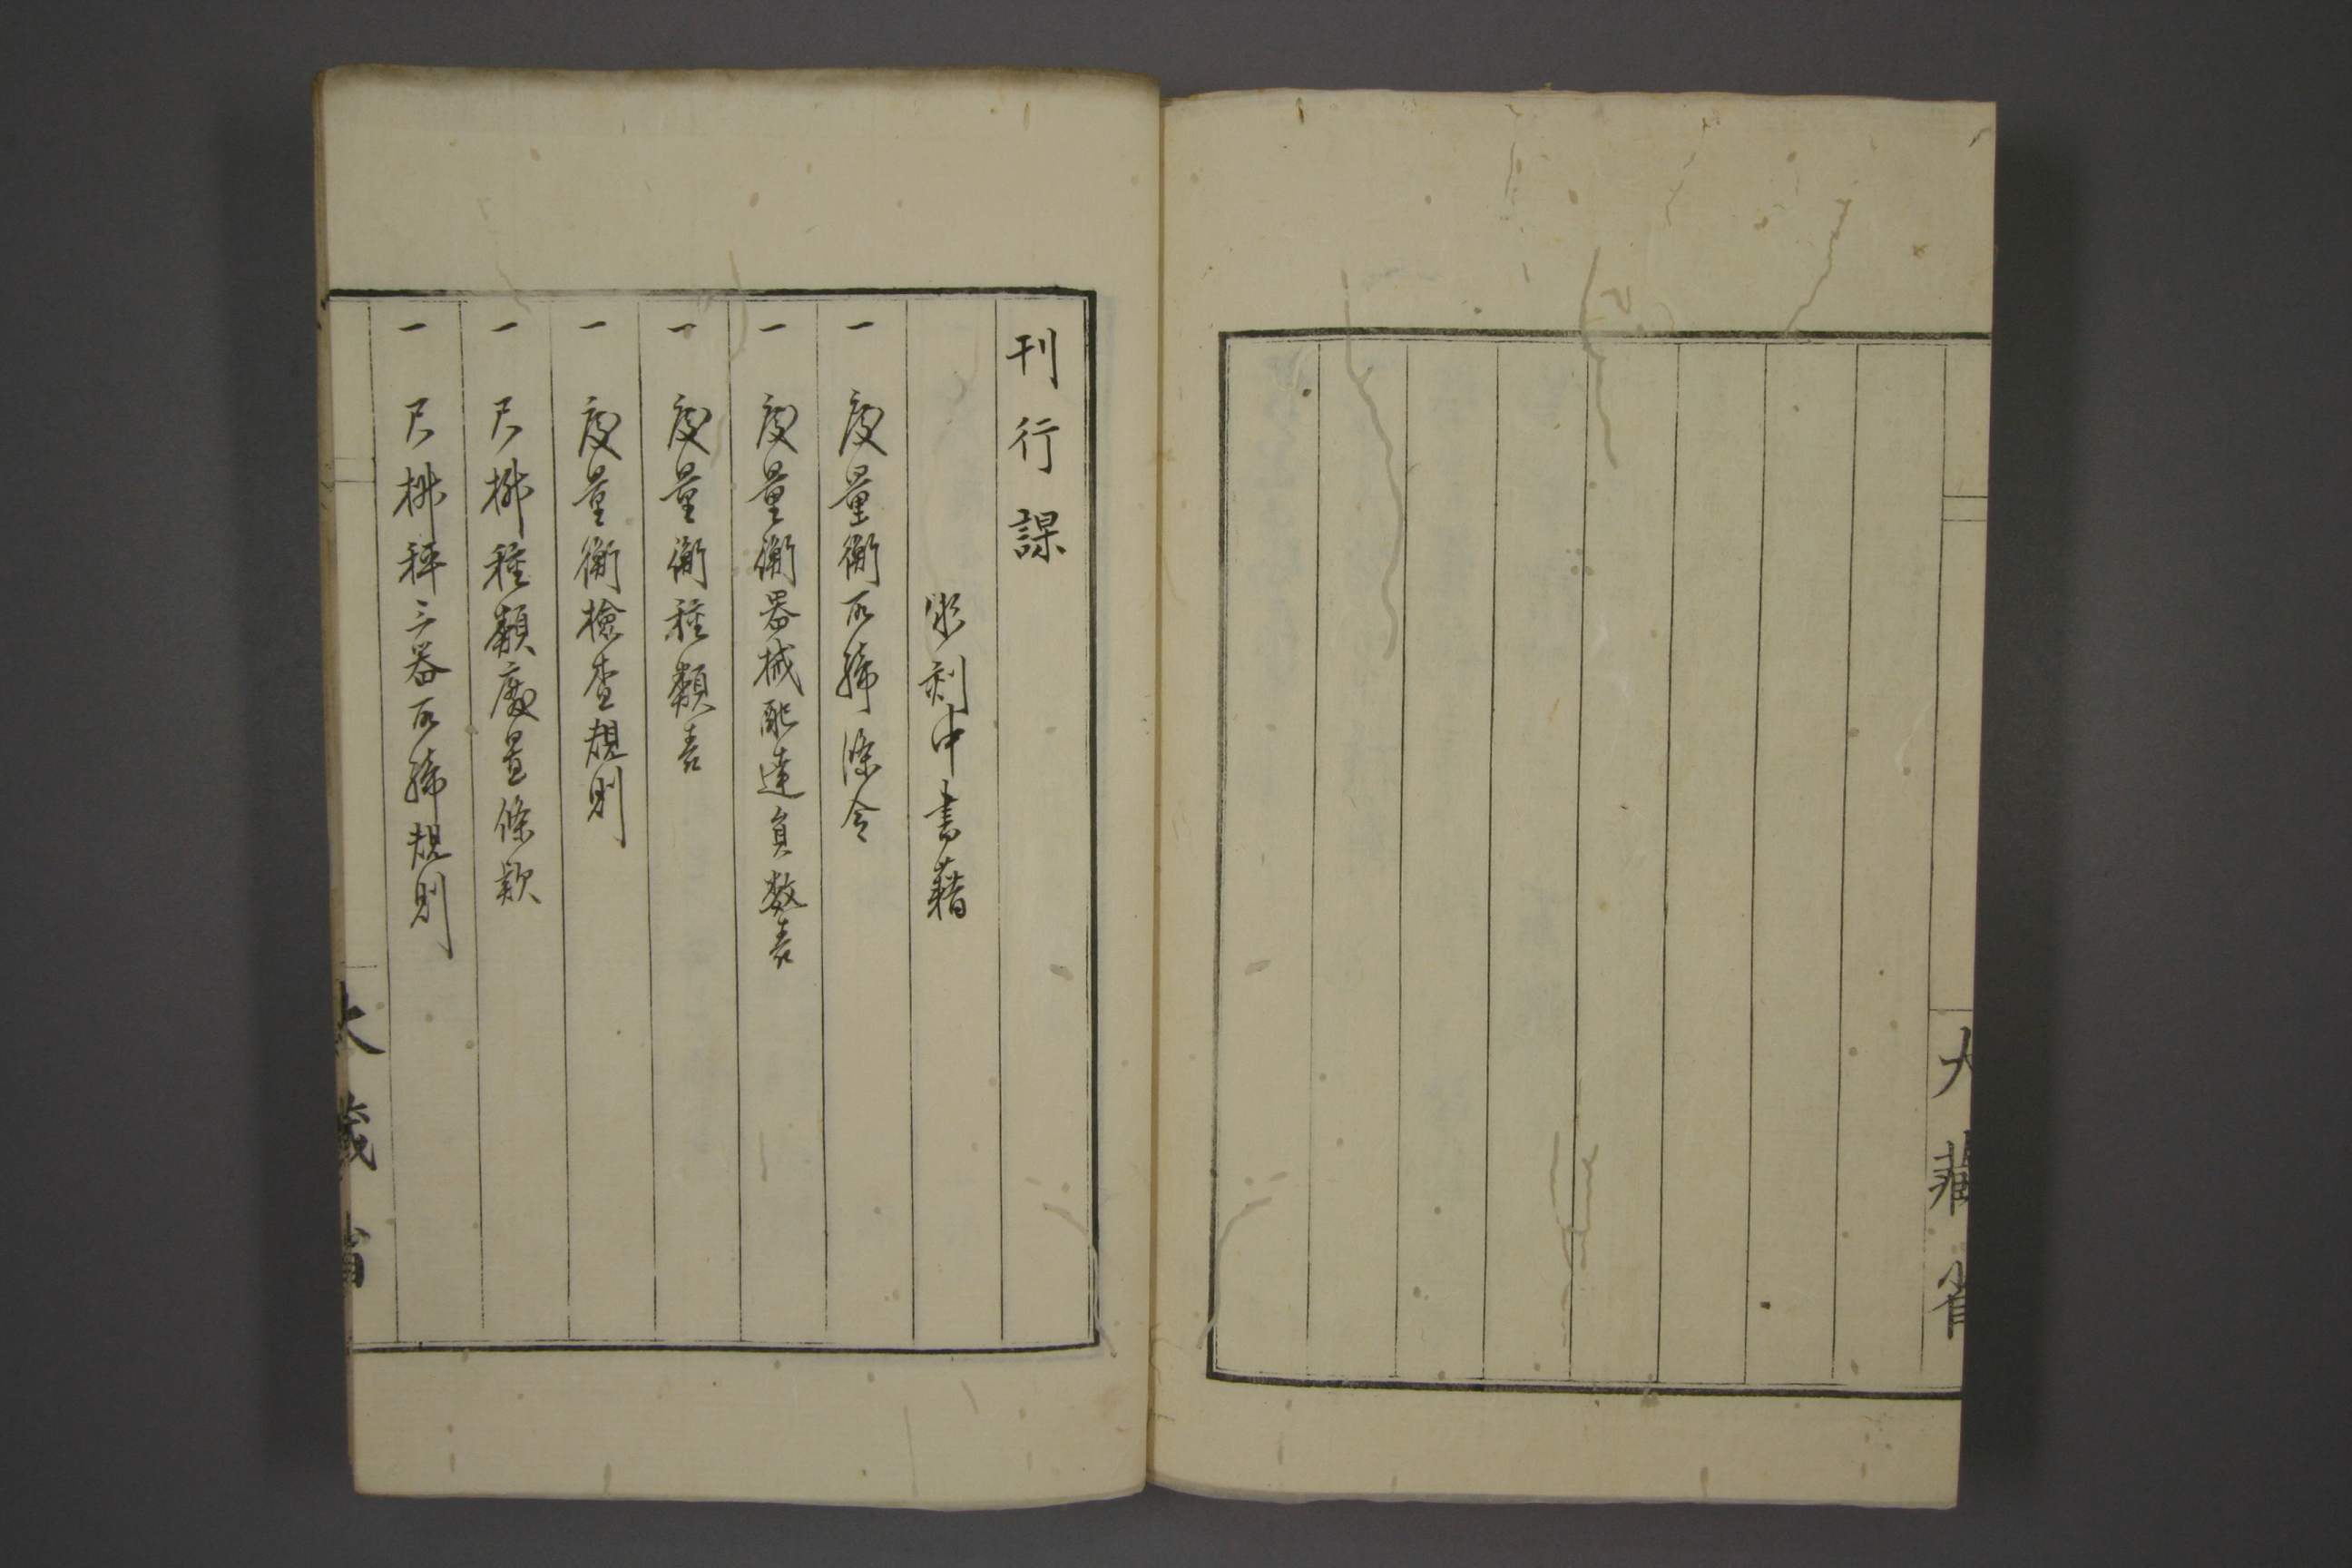 大藏省
刊行課
刻中書籍
一 度量衡取締條令
一 度量衡器械配達員数表
一 度量衡種類表
一 度量衡檢査規則
一 尺桝種類度量條款
一 尺桝秤三器取締規則
大藏省